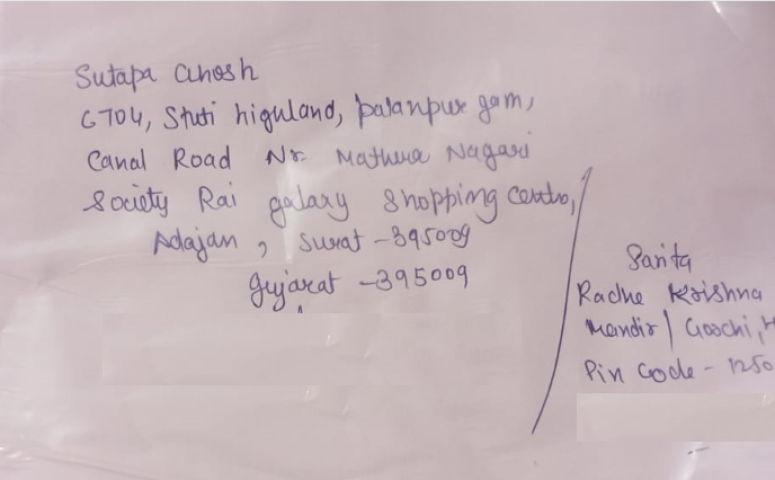 Sutapa Ghosh
G704, Stuti highland, palanpur gam,
Canal Road Nr. Mathura Nagari
Society Rai galary Shopping centre,
Adajan, Surat - 395009
gujarat - 395009
Sarita
Radhe Krishna
Mandir | Gorchi, H
Pin Code - 1250